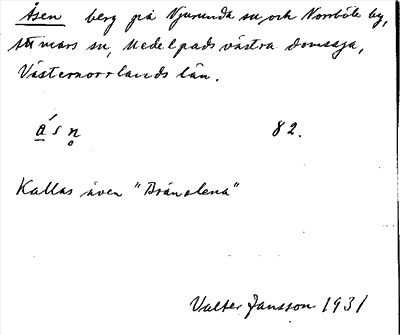 Åsen berg på Njurunda su, och Norrböle by,
Attmars su, Medelpads västra domsaga,
Västernorrlands län.
å´sn̥ 82.
Kallas även "Brånolena"
Valter Jansson 1931